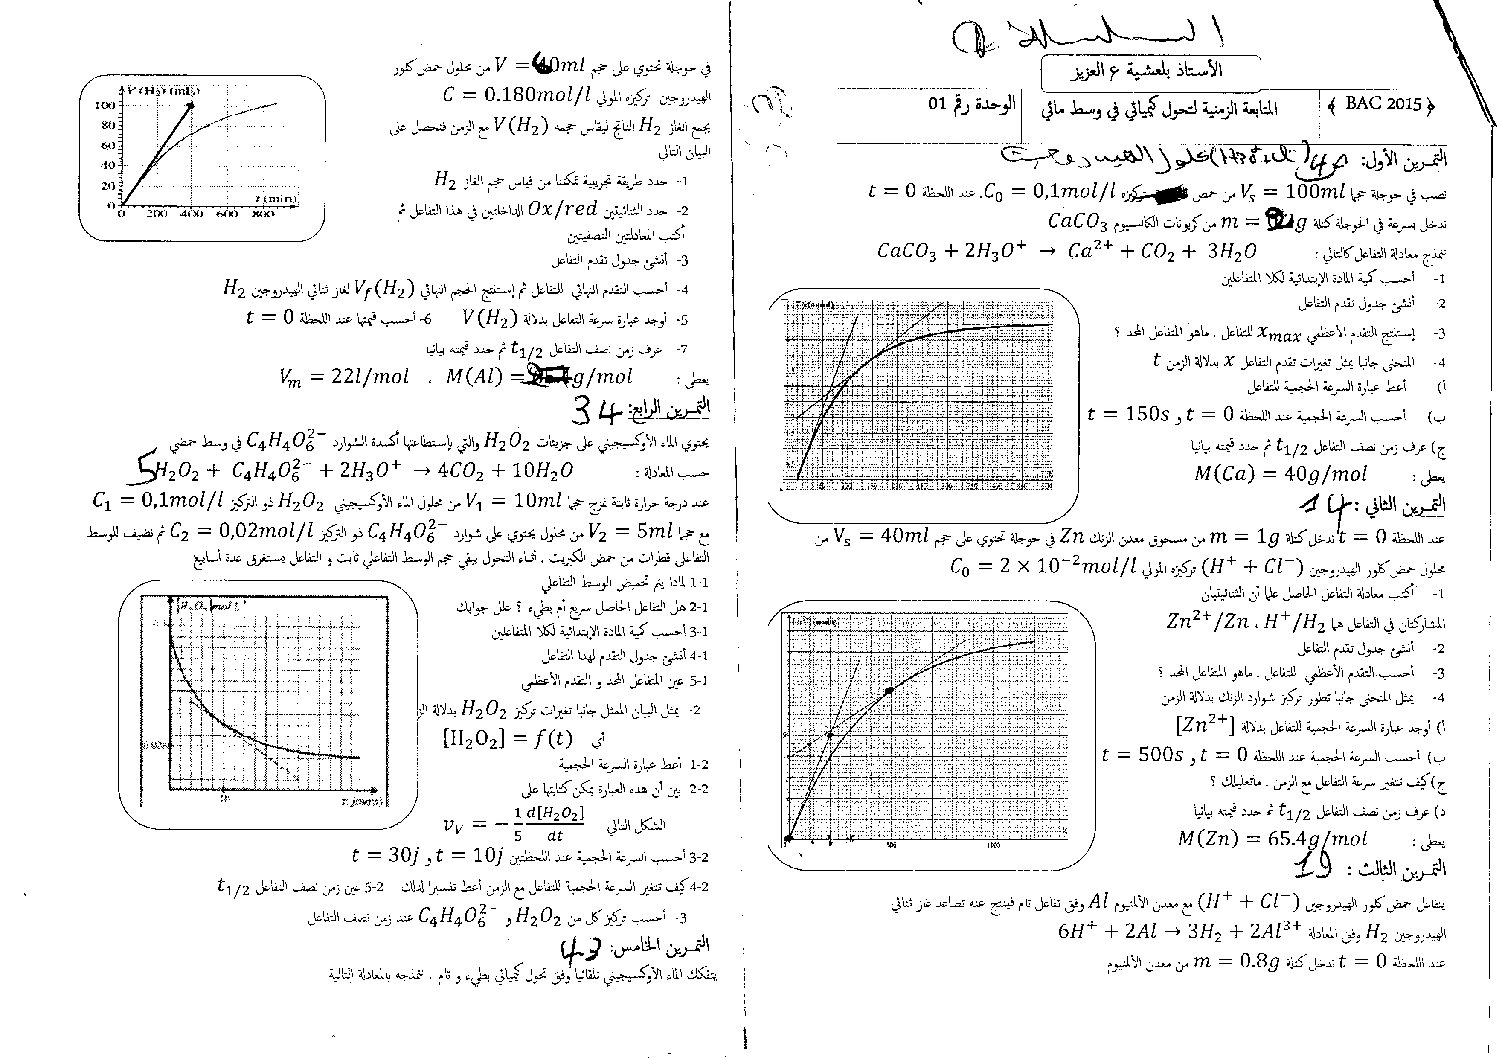 السلسلة
الأستاذ بلعشية ع العزيز
﴾ BAC 2015 ﴿ المتابعة الزمنية لتحول كيميائي في وسط مائي الوحدة رقم 01
التمرين الأول:
نصب في حوجلة حجما Vs = 100ml من حمض تركيزه C0 = 0,1mol/l. عند اللحظة t = 0
ندخل بسرعة في الحوجلة كتلة m = g من كربونات الكالسيوم CaCO3
نمذج معادلة التفاعل كالتالي : CaCO3 + 2H3O+ → Ca2+ + CO2 + 3H2O
1- أحسب كمية المادة الإبتدائية لكلا المتفاعلين
2- أنشئ جدول تقدم التفاعل
3- إستنتج التقدم الأعظمي xmax للتفاعل . ماهو المتفاعل المحد ؟
4- المنحنى جانبا يمثل تغيرات تقدم التفاعل x بدلالة الزمن t
أ) أعط عبارة السرعة الحجمية للتفاعل
ب) أحسب السرعة الحجمية عند اللحظة t = 0 و t = 150s
ج) عرف زمن نصف التفاعل t1/2 ثم حدد قيمته بيانيا
يعطى : M(Ca) = 40g/mol
التمرين الثاني :
عند اللحظة t = 0 ندخل كتلة m = 1g من مسحوق معدن الزنك Zn في حوجلة تحتوي على حجم Vs = 40ml من
محلول حمض كلور الهيدروجين (H+ + Cl−) تركيزه المولي C0 = 2 × 10−2mol/l
1- أكتب معادلة التفاعل الحاصل علما أن الثنائيتان
المشاركتان في التفاعل هما Zn2+/Zn ، H+/H2
2- أنشئ جدول تقدم التفاعل
3- أحسب التقدم الأعظمي للتفاعل . ماهو المتفاعل المحد ؟
4- يمثل المنحنى جانبا تطور تركيز شوارد الزنك بدلالة الزمن
أ) أوجد عبارة السرعة الحجمية للتفاعل بدلالة [Zn2+]
ب) أحسب السرعة الحجمية عند اللحظة t = 0 و t = 500s
ج) كيف تتغير سرعة التفاعل مع الزمن . ماتعليلك ؟
د) عرف زمن نصف التفاعل t1/2 ثم حدد قيمته بيانيا
يعطى : M(Zn) = 65.4g/mol
500 1000
التمرين الثالث : 19
يتفاعل حمض كلور الهيدروجين (H+ + Cl−) مع معدن الألمنيوم Al وفق تفاعل تام فينتج عنه تصاعد غاز ثنائي
الهيدروجين H2 وفق المعادلة 6H+ + 2Al → 3H2 + 2Al3+
عند اللحظة t = 0 ندخل كتلة m = 0.8g من معدن الألمنيوم
في حوجلة تحتوي على حجم V = ml من محلول حمض كلور
الهيدروجين تركيزه المولي C = 0.180mol/l
يجمع الغاز H2 الناتج ليقاس حجمه V(H2) مع الزمن فنحصل على
البيان التالي
V(H2)(mL)
100
80
60
40
20
0
0 200 400 600 800 t(min)
1- حدد طريقة تجريبية تمكننا من قياس حجم الغاز H2
2- حدد الثنائيتين Ox/red الداخلتين في هذا التفاعل ثم
أكتب المعادلتين النصفيتين
3- أنشئ جدول تقدم التفاعل
4- أحسب التقدم النهائي للتفاعل ثم إستنتج الحجم النهائي Vf(H2) لغاز ثنائي الهيدروجين H2
5- أوجد عبارة سرعة التفاعل بدلالة V(H2) 6- أحسب قيمتها عند اللحظة t = 0
7- عرف زمن نصف التفاعل t1/2 ثم حدد قيمته بيانيا
يعطى : M(Al) = g/mol ، Vm = 22l/mol
التمرين الرابع: 34
يحتوي الماء الأوكسيجيني على جزيئات H2O2 والتي بإستطاعتها أكسدة الشوارد C4H4O62− في وسط حمضي
حسب المعادلة : 5H2O2 + C4H4O62− + 2H3O+ → 4CO2 + 10H2O
عند درجة حرارة ثابتة نمزج حجما V1 = 10ml من محلول الماء الأوكسيجيني H2O2 ذو التركيز C1 = 0,1mol/l
مع حجما V2 = 5ml من محلول يحتوي على شوارد C4H4O62− ذو التركيز C2 = 0,02mol/l ثم نضيف للوسط
التفاعلي قطرات من حمض الكبريت . أثناء التحول يبقى حجم الوسط التفاعلي ثابت و التفاعل يستغرق عدة أسابيع
1-1 لماذا يتم تحميض الوسط التفاعلي
2-1 هل التفاعل الحاصل سريع أم بطيء ؟ علل جوابك
3-1 أحسب كمية المادة الإبتدائية لكلا المتفاعلين
4-1 أنشئ جدول التقدم لهذا التفاعل
5-1 عين المتفاعل المحد و التقدم الأعظمي
2- يمثل البيان الممثل جانبا تغيرات تركيز H2O2 بدلالة
أي [H2O2] = f(t)
1-2 أعط عبارة السرعة الحجمية
2-2 بين أن هده العبارة يمكن كتابتها على
الشكل التالي vV = − 1/5 d[H2O2]/dt
3-2 أحسب السرعة الحجمية عند اللحظتين t = 10j و t = 30j
4-2 كيف تتغير السرعة الحجمية للتفاعل مع الزمن أعط تفسيرا لذلك 5-2 عين زمن نصف التفاعل t1/2
3- أحسب تركيز كل من H2O2 و C4H4O62− عند زمن نصف التفاعل
التمرين الخامس: 43
يتفكك الماء الأوكسيجيني تلقائيا وفق تحول كيميائي بطيء و تام . ننمذجه بالمعادلة التالية